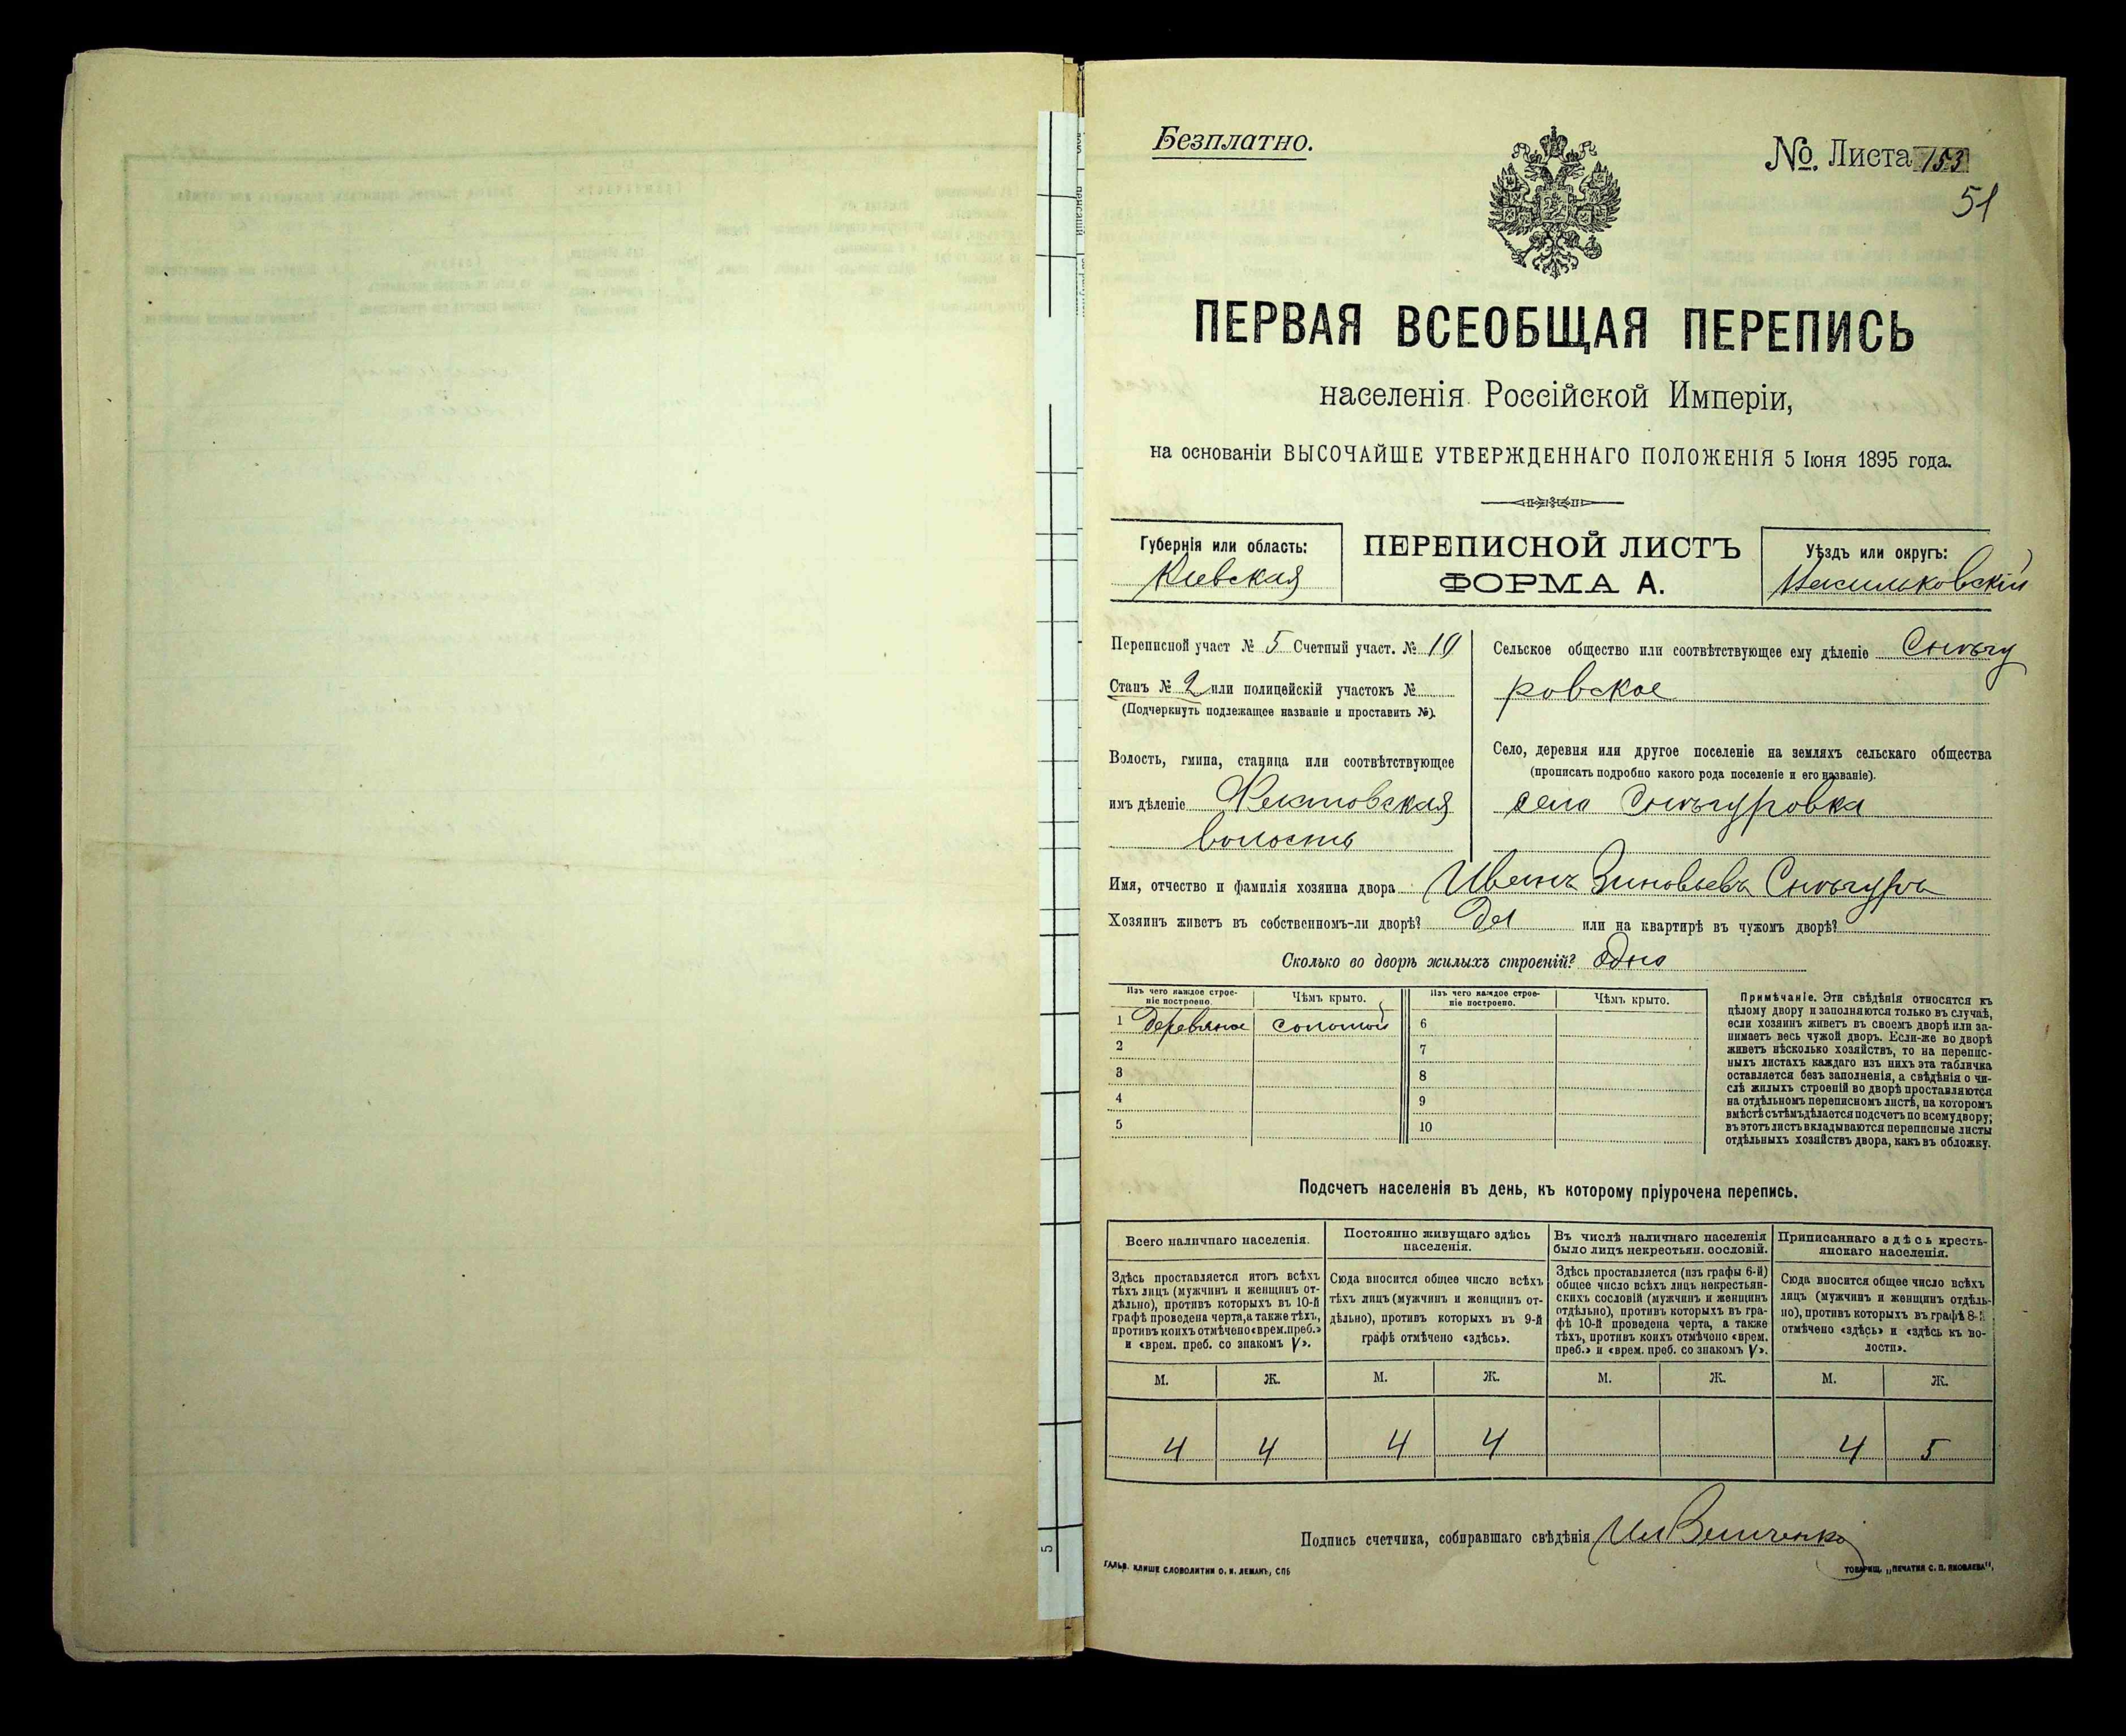 Безплатно.
№. Листа 153
51
ПЕРВАЯ ВСЕОБЩАЯ ПЕРЕПИСЬ
населенія Россійской Имперіи,
на основаніи ВЫСОЧАЙШЕ УТВЕРЖДЕННАГО ПОЛОЖЕНІЯ 5 Іюня 1895 года.
Губернія или область:
Кіевская
ПЕРЕПИСНОЙ ЛИСТЪ
ФОРМА А.
Уѣздъ или округъ:
Васильковскій
Переписной участ № 5 Счетный участ. № 10
Станъ № 2 или полицейскій участокъ №
(Подчеркнуть подлежащее названіе и проставить №).
Волость, гмина, станица или соотвѣтствующее
имъ дѣленіе
волость
Сельское общество или соотвѣтствующее ему дѣленіе Снѣгу
ровское
Село, деревня или другое поселеніе на земляхъ сельскаго общества
(прописать подробно какого рода поселеніе и его названіе).
село Снѣгуровка
Имя, отчество и фамилія хозяина двора Иванъ Зиновьевъ Снѣгуръ
Хозяинъ живетъ въ собственномъ-ли дворѣ? Да или на квартирѣ въ чужомъ дворѣ?
Сколько во дворѣ жилыхъ строеній? одно
Изъ чего каждое строе-
ніе построено.
Чѣмъ крыто.
Изъ чего каждое строе-
ніе построено.
Чѣмъ крыто.
1 деревяное соломой 6
2 7
3 8
4 9
5 10
Примѣчаніе. Эти свѣдѣнія относятся къ
цѣлому двору и заполняются только въ случаѣ,
если хозяинъ живетъ въ своемъ дворѣ или за-
нимаетъ весь чужой дворъ. Если-же во дворѣ
живетъ нѣсколько хозяйствъ, то на перепис-
ныхъ листахъ каждаго изъ нихъ эта табличка
оставляется безъ заполненія, а свѣдѣнія о чи-
слѣ жилыхъ строеній во дворѣ проставляются
на отдѣльномъ переписномъ листѣ, на которомъ
вмѣстѣ съ тѣмъ дѣлается подсчетъ по всему двору;
въ этотъ листъ вкладываются переписные листы
отдѣльныхъ хозяйствъ двора, какъ въ обложку.
Подсчетъ населенія въ день, къ которому пріурочена перепись.
Всего наличнаго населенія.
Здѣсь проставляется итогъ всѣхъ
тѣхъ лицъ (мужчинъ и женщинъ от-
дѣльно), противъ которыхъ въ 10-й
графѣ проведена черта, а также тѣхъ,
противъ коихъ отмѣчено «врем. преб.»
и «врем. преб. со знакомъ V».
Постоянно живущаго здѣсь
населенія.
Сюда вносится общее число всѣхъ
тѣхъ лицъ (мужчинъ и женщинъ от-
дѣльно), противъ которыхъ въ 9-й
графѣ отмѣчено «здѣсь».
Въ числѣ наличнаго населенія
было лицъ некрестьян. сословій.
Здѣсь проставляется (изъ графы 6-й)
общее число всѣхъ лицъ некрестьян-
скихъ сословій (мужчинъ и женщинъ
отдѣльно), противъ которыхъ въ гра-
фѣ 10-й проведена черта, а также
тѣхъ, противъ коихъ отмѣчено «врем.
преб.» и «врем. преб. со знакомъ V».
Приписаннаго здѣсь кресть-
янскаго населенія.
Сюда вносится общее число всѣхъ
лицъ (мужчинъ и женщинъ отдѣль-
но), противъ которыхъ въ графѣ 8-й
отмѣчено «здѣсь» и «здѣсь къ во-
лости».
М. Ж. М. Ж. М. Ж. М. Ж.
4 4 4 4 4 5
Подпись счетчика, собиравшаго свѣдѣнія
ГАЛЬВ. КЛИШЕ СЛОВОЛИТНИ О. И. ЛЕМАНЪ, СПБ
ТОВАРИЩ. „ПЕЧАТНЯ С. П. ЯКОВЛЕВА",
5